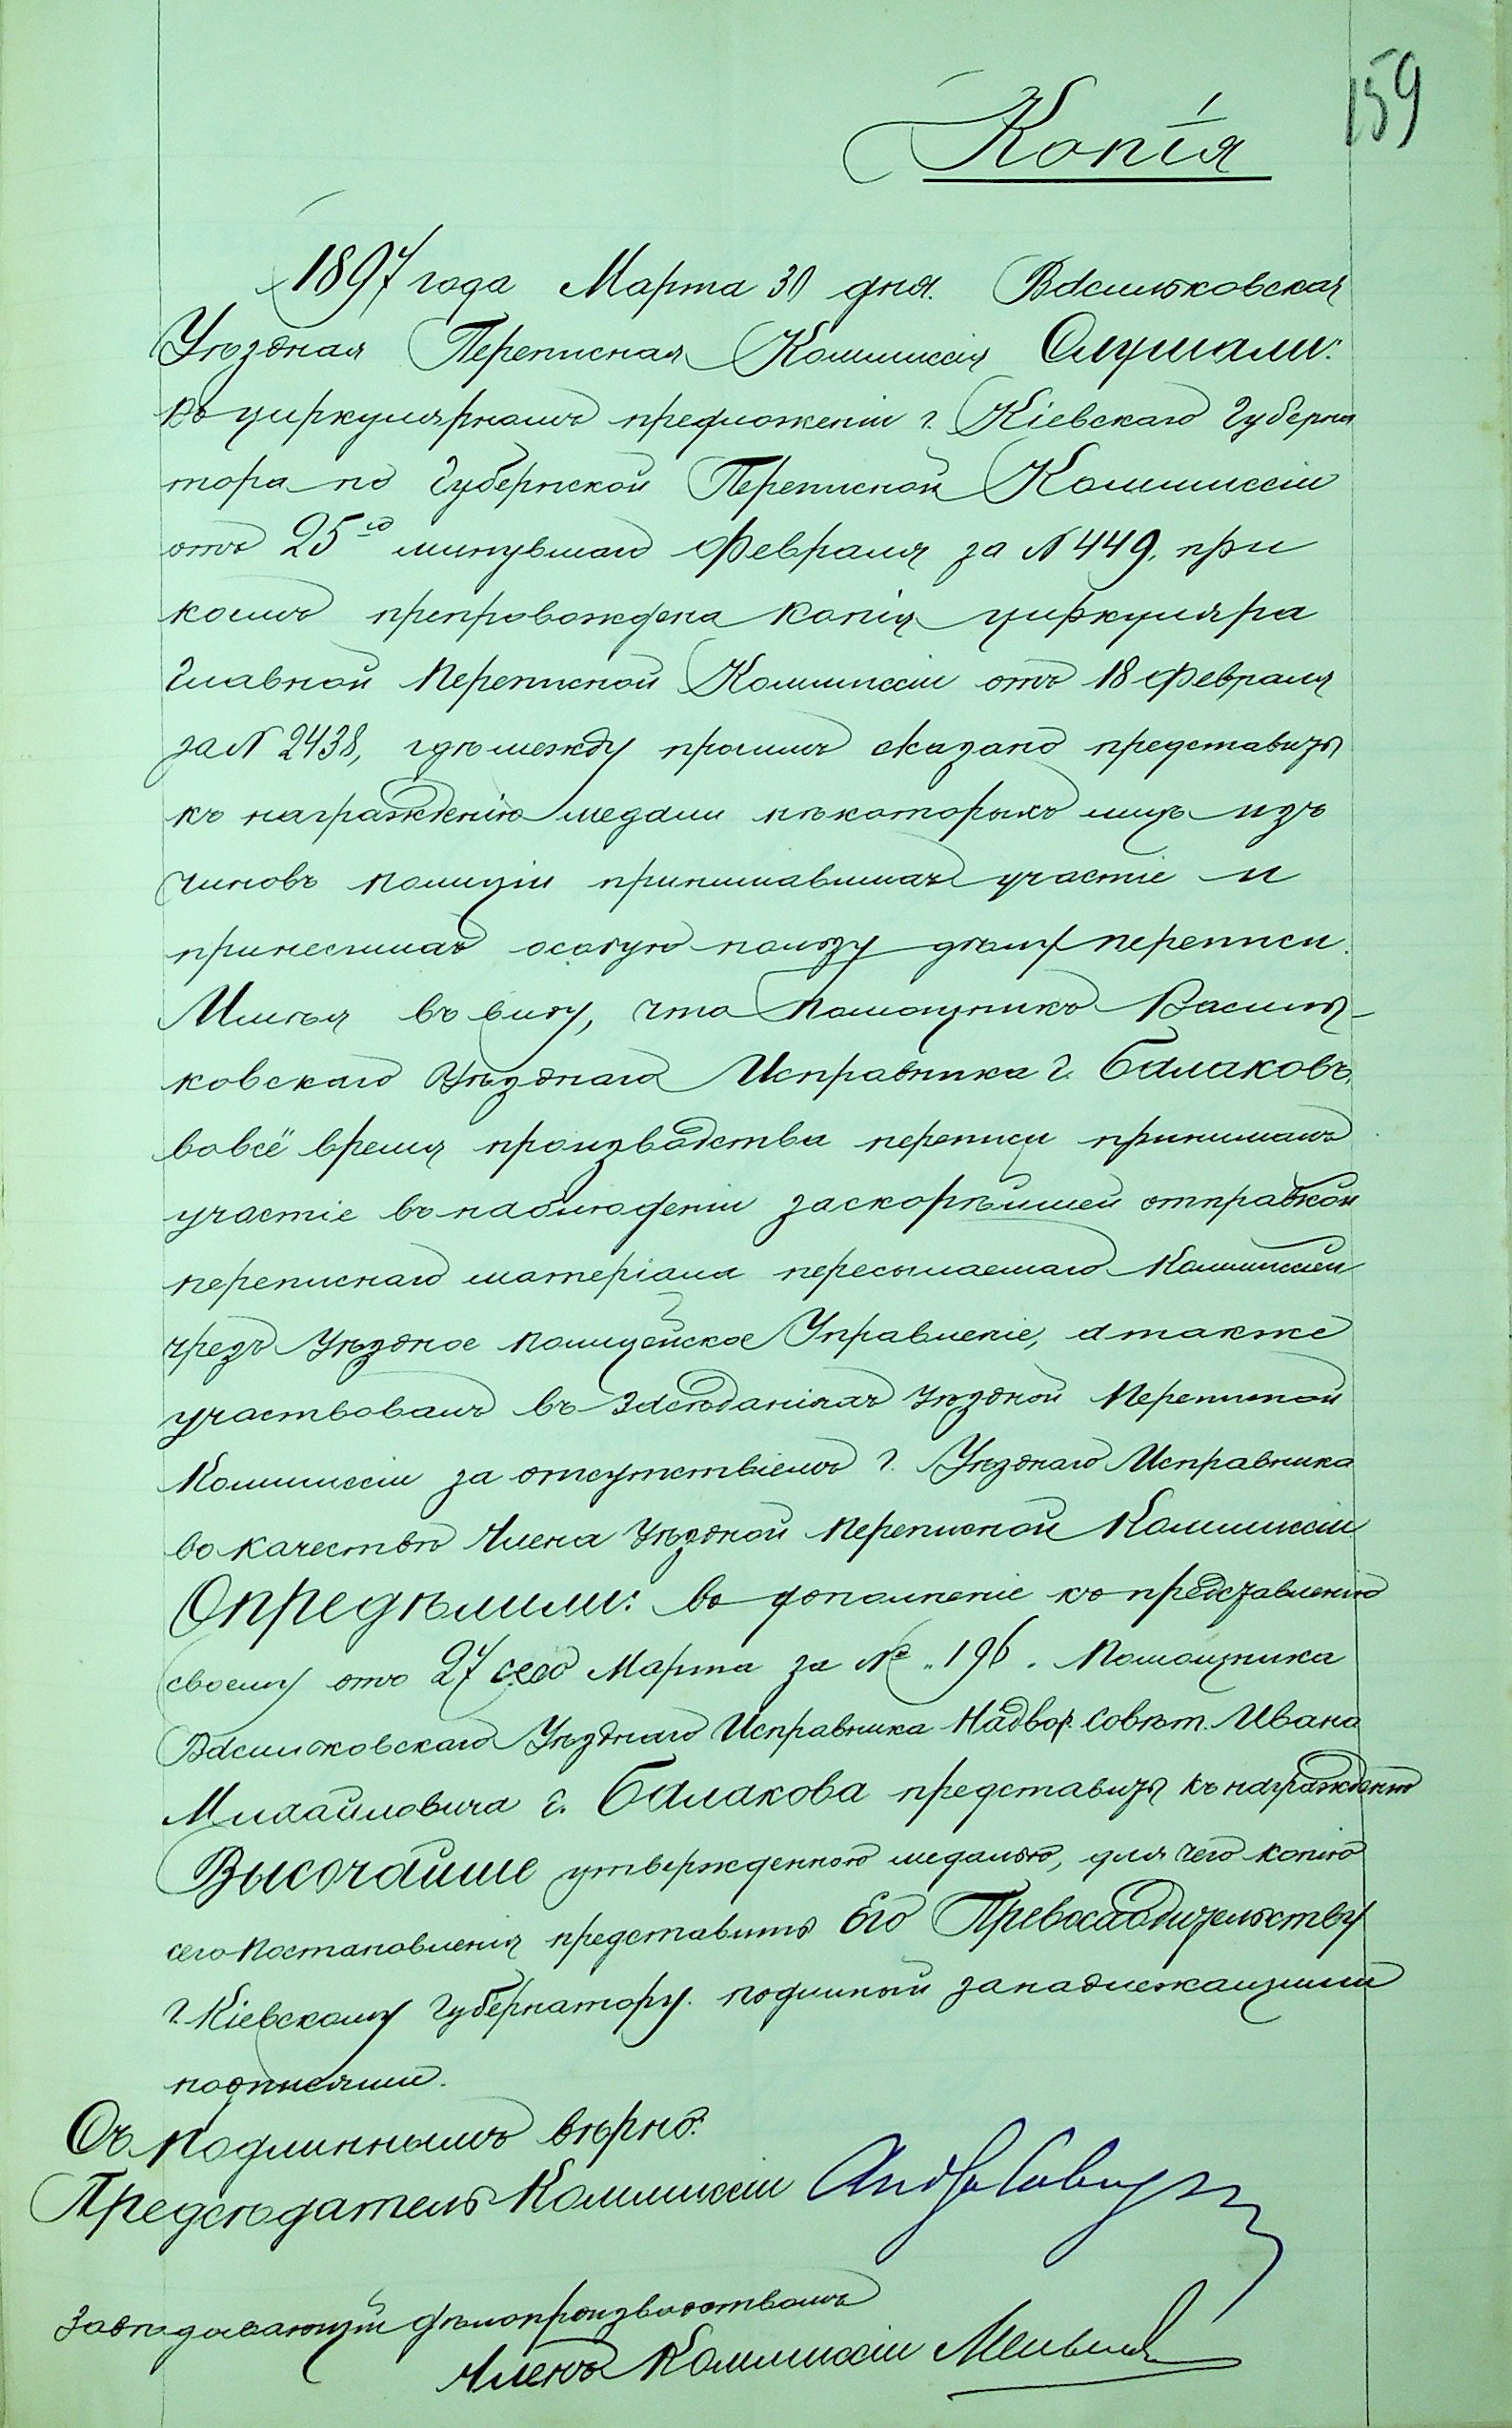 159
Копія
1897 года Марта 30 дня. Васильковская
Уѣздная Переписная Коммиссія Слушали:
въ циркулярномъ предложеніи г. Кіевскаго Губерна
тора по Губернской Переписной Коммиссіи
отъ 25го минувшаго Февраля за N 449, при
коемъ препровождена копія циркуляра
Главной Переписной Коммиссіи отъ 18 Февраля
за N 2438, гдѣ между прочимъ сказано представить
къ награжденію медали нѣкоторыхъ лицъ изъ
чиновъ полиціи принимавшихъ участіе и
принесшихъ особую пользу дѣлу переписи.
Имѣя въ виду, что Помощникъ Василь-
ковскаго Уѣзднаго Исправника г. Балаковъ,
во всё время производства переписи принималъ
участіе въ наблюденіи за скорѣйшей отправкой
переписнаго матеріала пересылаемаго Коммиссіей
чрезъ Уѣздное Полицейское Управленіе, а также
участвовалъ въ Засѣданіяхъ Уѣздной Переписной
Коммиссіи за отсутствіемъ г. Уѣзднаго Исправника
въ качествѣ Члена Уѣздной Переписной Коммиссіи
Опредѣлили: въ дополненіе къ представленію
своему отъ 27 сего Марта за № 196. Помощника
Васильковскаго Уѣзднаго Исправника Надвор. Совѣт. Ивана
Михайловича г. Балакова представить къ награжденію
Высочайше утвержденною медалью, для чего копію
сего постановленія представить Его Превосходительству
г. Кіевскому Губернатору. Подлинный за надлежащими
подписями.
Съ подлиннымъ вѣрно:
Предсѣдатель Коммиссіи
Завѣдывающій дѣлопроизводствомъ
Членъ Коммиссіи